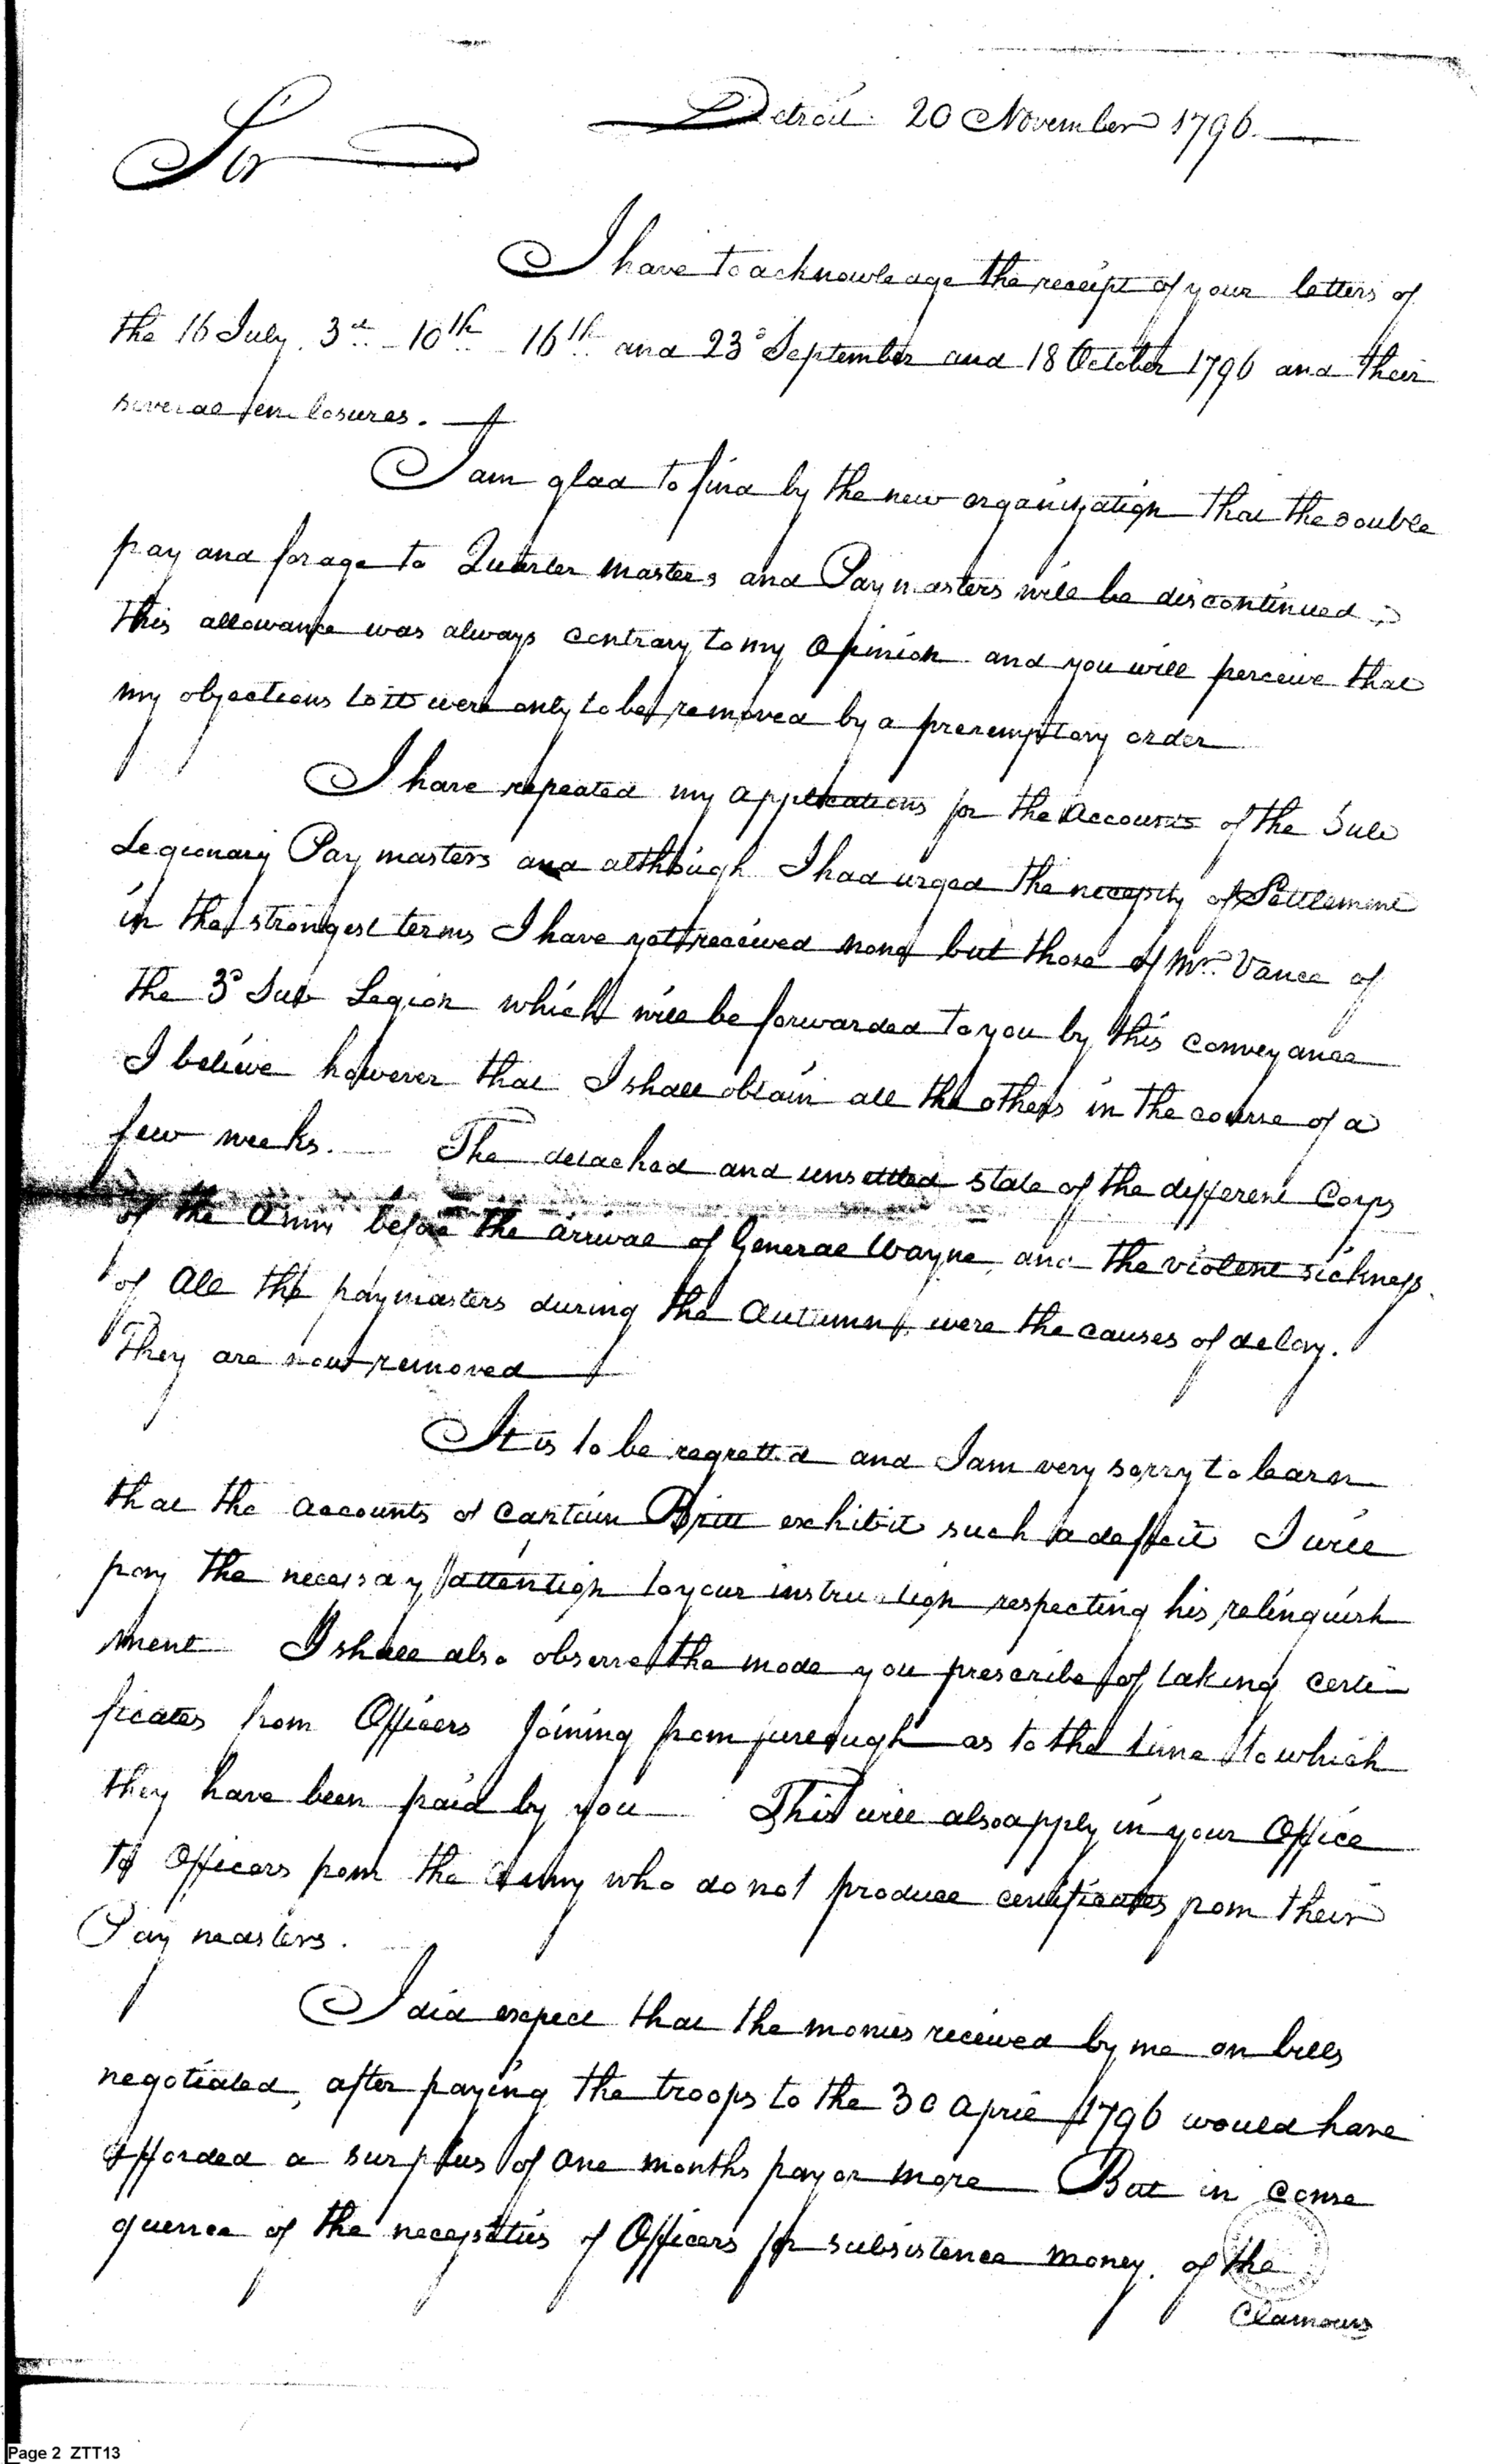 Detroit 20 November 1796.
Sir
I have to acknowledge the receipt of your letters of
the 16 July. 3d 10th 16th and 23d September and 18 October 1796 and their
several enclosures.
I am glad to find by the new organization that the double
pay and forage to Quarter masters and Paymasters will be discontinued
this allowance was always contrary to my opinion and you will perceive that
my objections to it were only to be removed by a preremptory order
I have repeated my applications for the Accounts of the Sub
Legionary Pay masters and although I had urged the necessity of Settlement
in the strongest terms I have yet received none but those of Mr. Vance of
the 3d Sub Legion which will be forwarded to you by this conveyance
I believe however that I shall obtain all the others in the course of a
few weeks. The detached and unsettled state of the different Corps
of the Army before the arrival of General Wayne, and the violent sickness
of all the paymasters during the Autumn, were the causes of delay.
They are now removed
It is to be regretted and I am very sorry to learn
that the accounts of Captain Britt exhibit such a deficit I will
pay the necessary attention to your instruction respecting his relinquish
ment I shall also observe the mode you prescribe of taking certi-
ficates from Officers joining from furlough as to the time to which
they have been paid by you This will also apply in your Office
to Officers from the Army who do not produce certificates from their
Pay masters.
I did expect that the monies received by me on bills
negotiated, after paying the troops to the 30 April 1796 would have
afforded a surplus of one months pay or more But in conse
quence of the necessities of Officers for subsistence money. of the
Clamours
Page 2 ZTT13